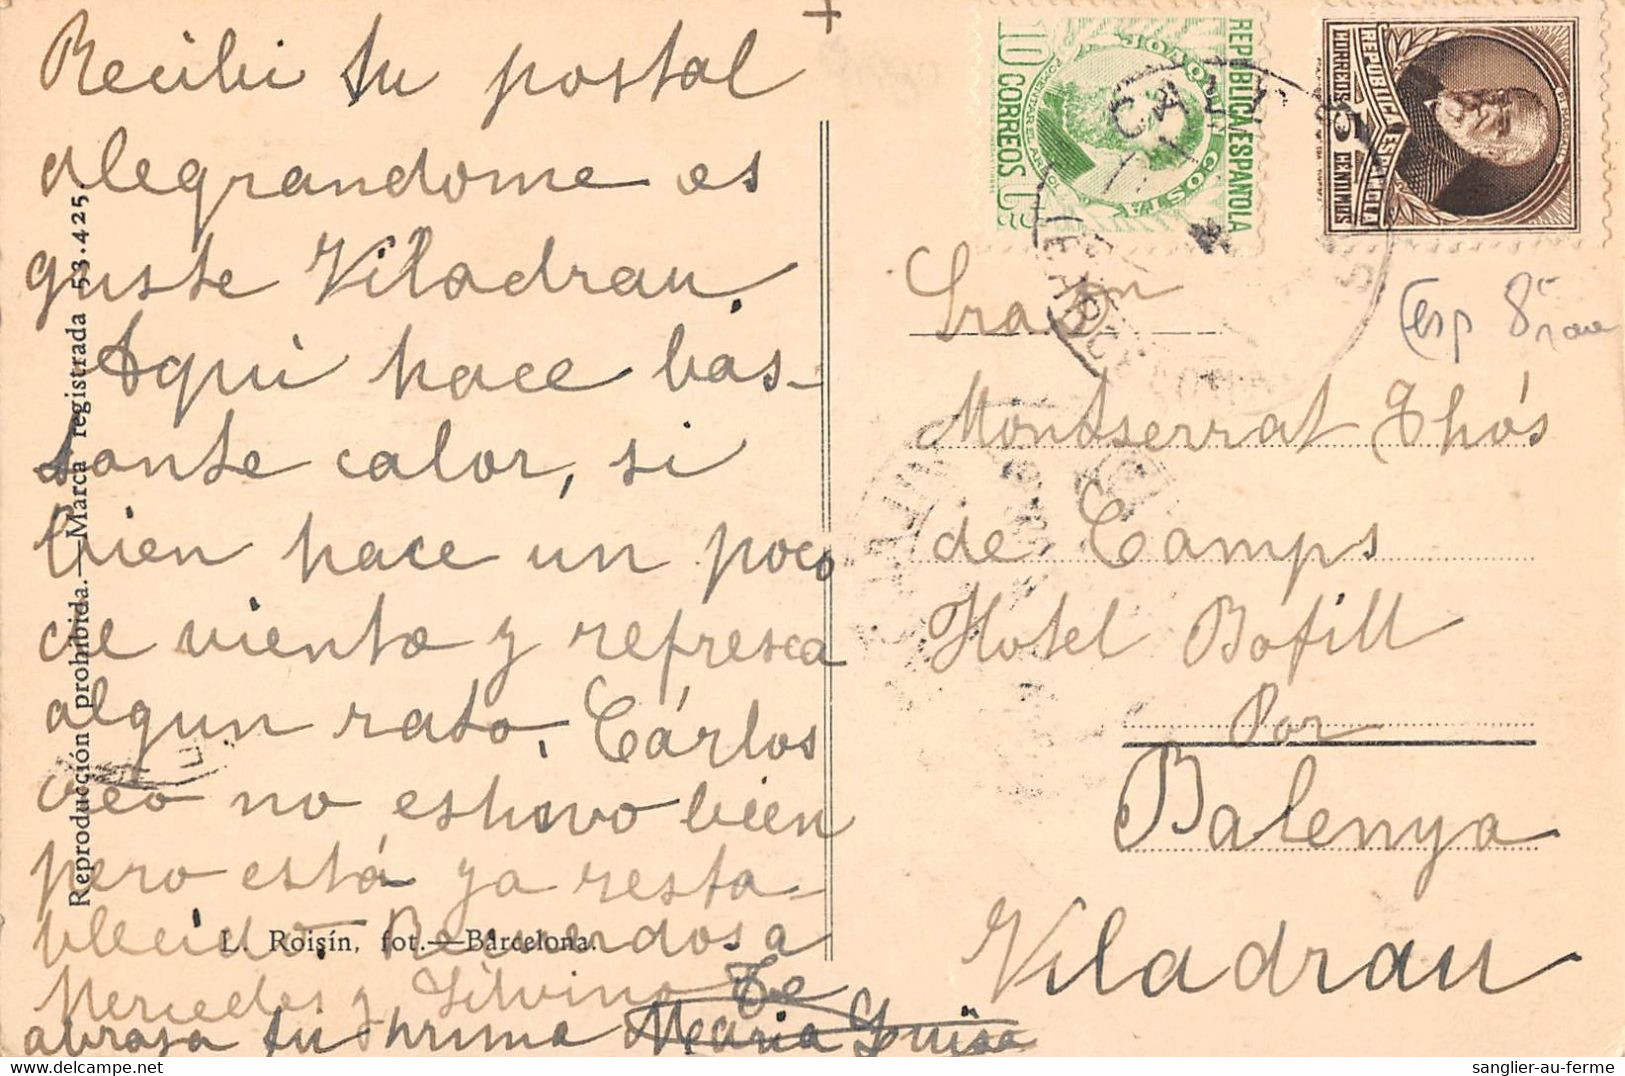 Recibi tu postal
alegrandome os
guste Viladrau.
Aqui hace bas-
tante calor, si
bien hace un poco
de viento y refresca
algun rato. Cárlos
creo no estuvo bien
pero está ya resta-
blecido. Recuerdos a
Mercedes y Silvino Te
abrasa tu prima Maria Luisa
Reproducción prohibida.—Marca registrada 53.425.
L. Roisin, fot.—Barcelona.
REPUBLICA ESPAÑOLA
JOAQUIN COSTA
10 CORREOS
REPUBLICA ESPAÑOLA
CORREOS 5 CENTIMOS
Esp 8
Sra Dn
Montserrat Thós
de Camps
Hotel Bofill
Por
Balenya
Viladrau
sanglier-au-ferme.com